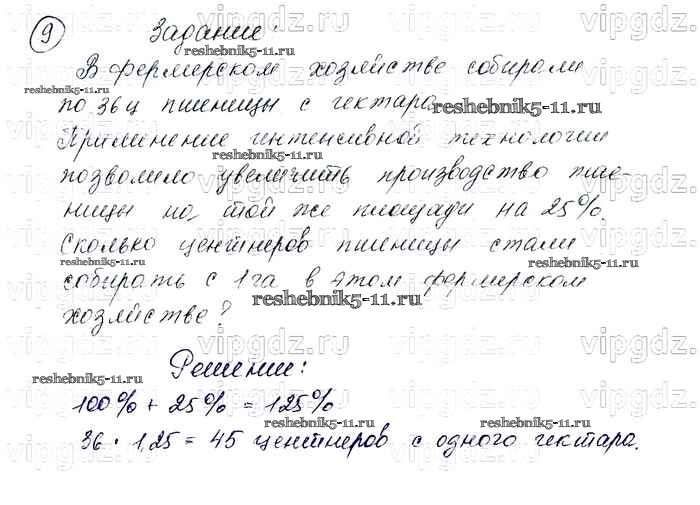 9 Задание:
В фермерском хозяйстве собирали
по 36 ц пшеницы с гектара.
Применение интенсивной технологии
позволило увеличить производство пше-
ницы на той же площади на 25%.
Сколько центнеров пшеницы стали
собирать с 1 га в этом фермерском
хозяйстве?
Решение:
100% + 25% = 125%
36 · 1,25 = 45 центнеров с одного гектара.
vipgdz.ru
reshebnik5-11.ru